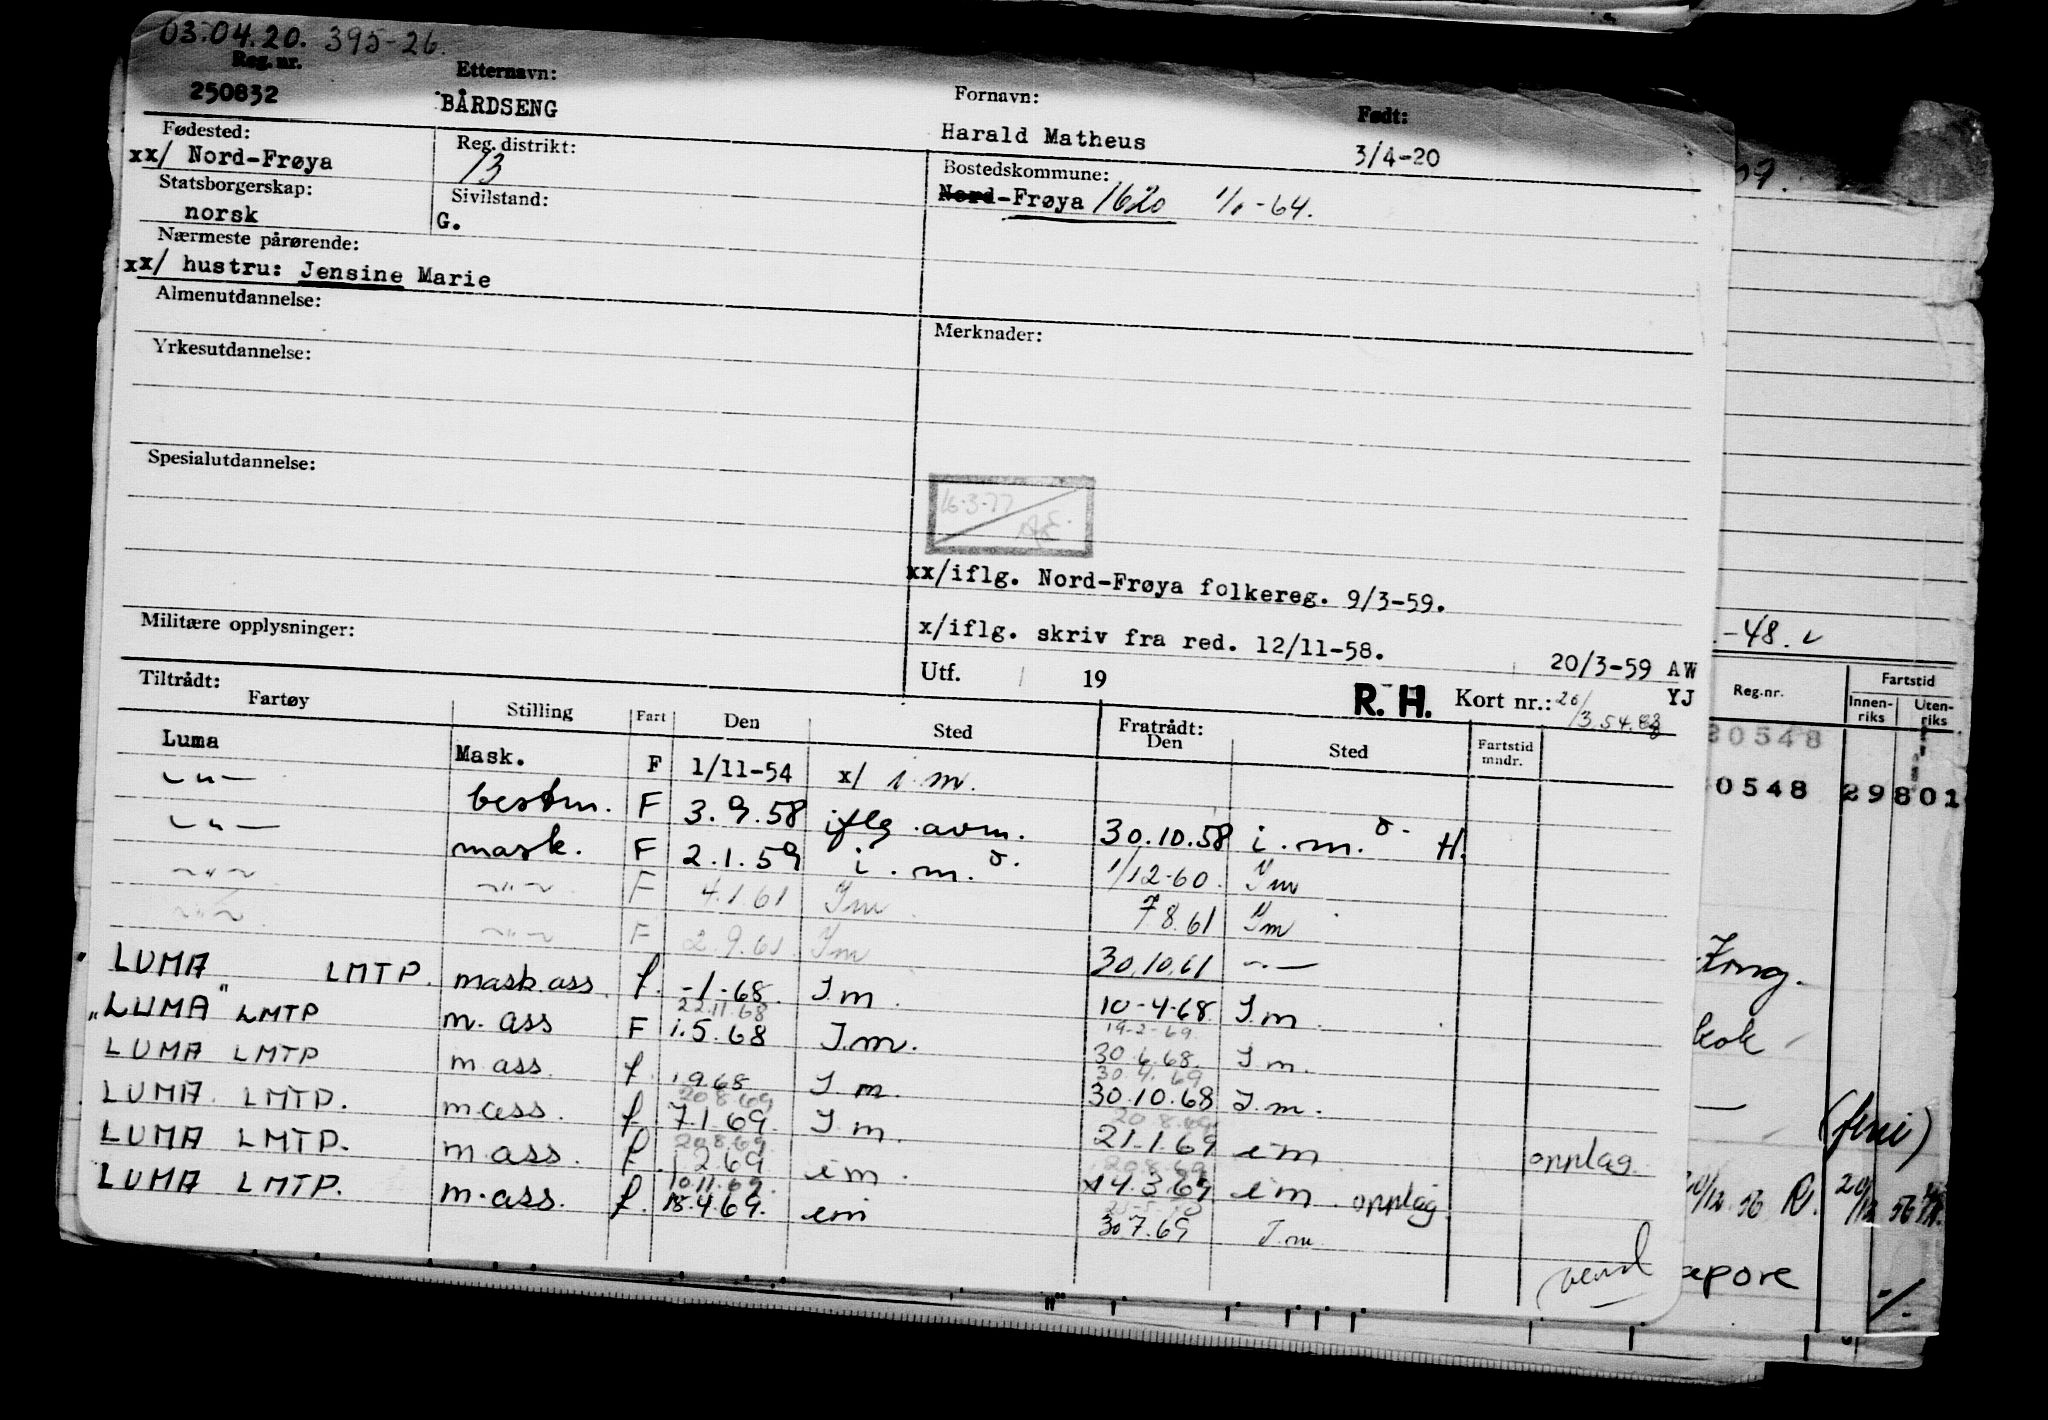 03.04.20. 395-26.
Reg. nr. Etternavn: Fornavn: Født:
250832 BÅRDSENG Harald Matheus 3/4-20
Fødested: Reg. distrikt: Bostedskommune:
xx/ Nord-Frøya 13 Nord-Frøya 1620 1/1-64.
Statsborgerskap: Sivilstand:
norsk G.
Nærmeste pårørende:
xx/ hustru: Jensine Marie
Almenutdannelse: Merknader:
Yrkesutdannelse:
Spesialutdannelse:
16-3-77
xx/iflg. Nord-Frøya folkereg. 9/3-59.
x/iflg. skriv fra red. 12/11-58.
Militære opplysninger:
20/3-59 AW
Utf. 19 R. H. Kort nr.: YJ
Tiltrådt: Fratrådt:
Fartøy Stilling Fart Den Sted Den Sted Fartstid mndr.
Luma Mask. F 1/11-54 x/ i.m.
-"- bestm. F 3.9.58 iflg. avm. 30.10.58 i.m. H.
-"- mask. F 2.1.59 i.m. 1/12-60. Im
-"- -"- F 4.1.61 Im 7.8.61 Im
-"- -"- F 2.9.61 Im 30.10.61 -"-
LUMA LMTP. mask.ass. f. -1-68. I m. 10-4-68 I.m.
22.11.68 19-2-69
"LUMA" LMTP m. ass F 1.5.68 I.m. 30.6.68. I m.
30.4.69
LUMA LMTP m ass. f. 1.9.68 I m. 30.10.68 I.m.
20.8.69 20.8.69
LUMA. LMTP. m.ass. f 7.1.69. I m. 21-1.69 im. opplag.
20.8.69 20.8.69
LUMA LMTP. m.ass. f. 1.2.69 im. 14.3.69. im. opplag.
10.11.69.
LUMA LMTP. m.ass. f. 15.4.69. im 30.7.69 I.m.
vend
-48.
Reg.nr. Fartstid
Innenriks Utenriks
30548
0548 29801
(ferie)
20/12 56
apore